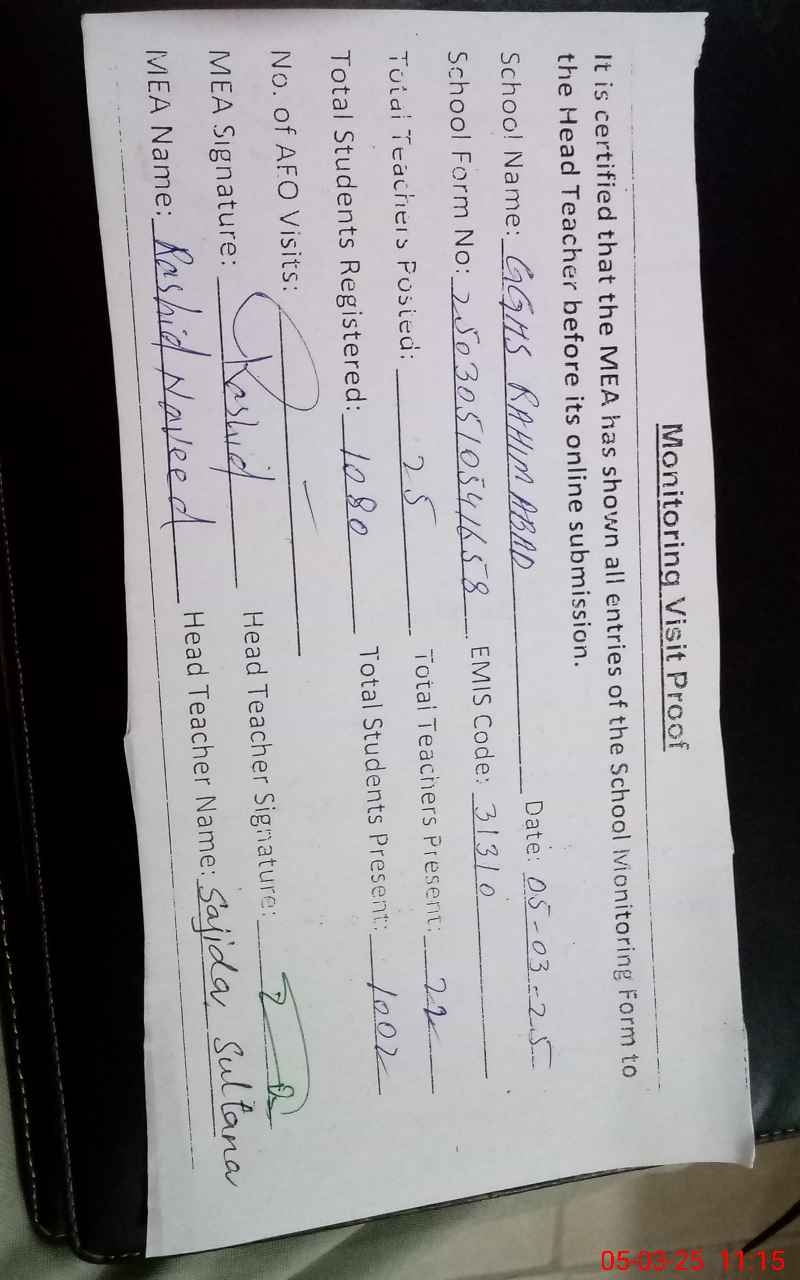 Monitoring Visit Proof
It is certified that the MEA has shown all entries of the School Monitoring Form to
the Head Teacher before its online submission.
School Name: GGHS RAHIM ABAD Date: 05-03-25
School Form No: 25030510541658 EMIS Code: 31310
Total Teachers Posted: 25 Total Teachers Present: 22
Total Students Registered: 1080 Total Students Present: 1002
No. of AEO Visits: -
MEA Signature: Rashid Head Teacher Signature:
MEA Name: Rashid Naveed Head Teacher Name: Sajida Sultana
05-03-25 11:15